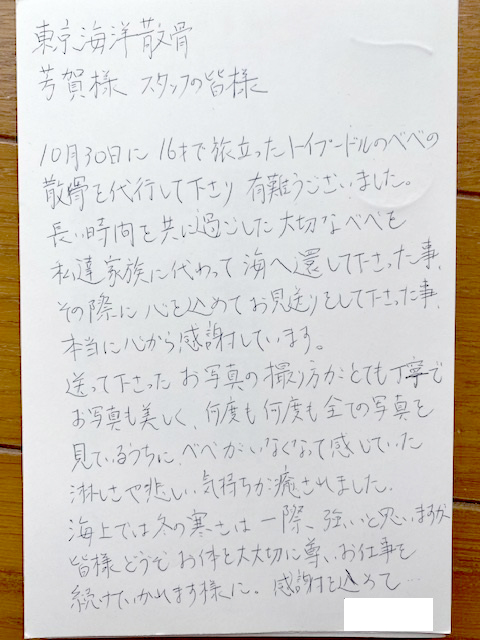 東京海洋散骨
芳賀様 スタッフの皆様
10月30日に 16才で旅立ったトイプードルのべべの
散骨を代行して下さり 有難うございました。
長い時間を共に過ごした大切なべべを
私達家族に代わって 海へ還して下さった事、
その際に 心を込めて お見送りをして下さった事、
本当に心から感謝しています。
送って下さった お写真の撮り方がとても丁寧で
お写真も美しく、何度も何度も全ての写真を
見ているうちに、べべがいなくなって感じていた
淋しさや悲しい気持ちが癒されました。
海上では冬の寒さは 一際、強いと思いますが
皆様どうぞ お体を大切に尊いお仕事を
続けていかれます様に。 感謝を込めて…